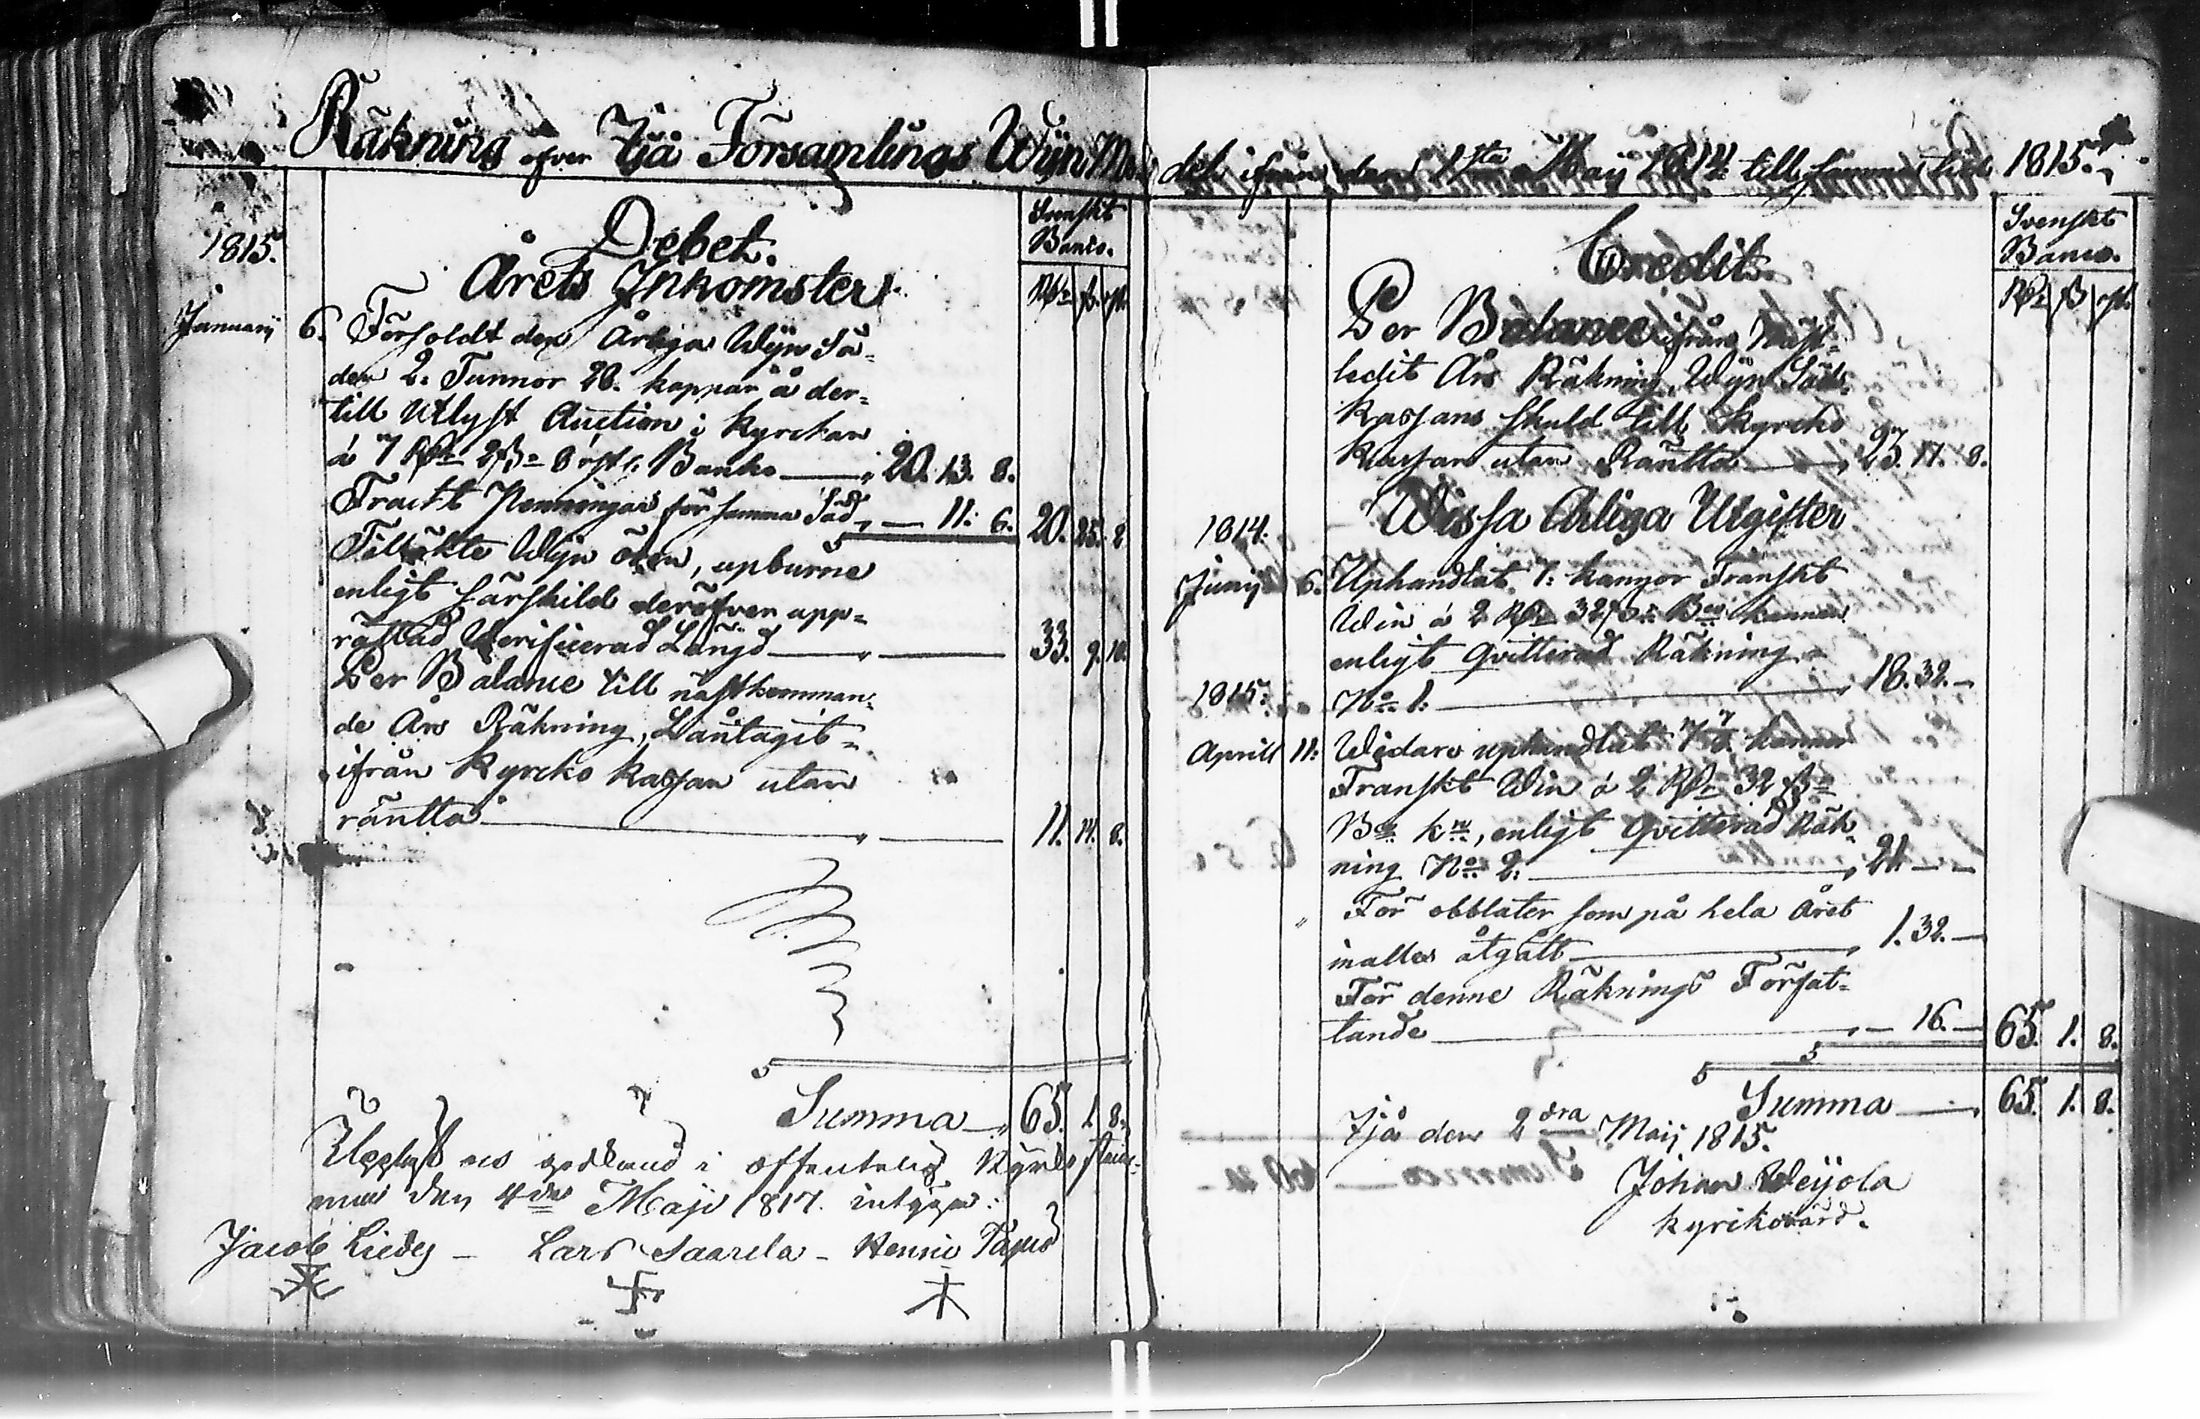 Räkning öfver Ijå Församlings Wijn Me-
del ifrån den 1sta Maij 1814 till samma tid 1815.
Svenskt
Banco.
Debet.
1815.
Årets Inkomster
Rdr ß rst.
Januarij 6. Försåldt den Årliga Wijn Sä-
den 2. Tunnor 28. kappar å der-
till Utlyst Auction i Kyrckan
á 7 Rdr 2 ß 8 rst. Banko 20. 13. 8.
Fracht Penningar för samma Säd 11. 6. 20. 25. 2
Tillökte Wijn ören, upburne
enligt särskild deröfver upp-
rättad Verificerad Längd 33. 9. 10.
Per Balance till nästkomman-
de Års Räkning, Låntagit
ifrån Kyrcko Kassan utan
räntta 11. 14. 8.
Summa 65. 1. 8.
Upplyst och godkänd i offentelig Kyrko stäm-
ma den 4de Maji 1817. intyga:
Jacob Liedes - Lars Saarela - Henric
Svenskt
Banco.
Credit.
Rdr ß rst.
Per Balance ifrån Näst-
ledit Års Räkning, Wijn Säds
Kassans skuld till Kyrcko
Kassan utan Räntta 23. 17. 8.
Wissa Årliga Utgifter
1814.
Junij 6. Uphandlat 7: kannor Franskt
Win á 2 Rdr 32 ß Bco kannan
enligt qvitterad Räkning
1815. No 1: 18. 32. -
Aprill 11. Widare uphandlat 7 7/8 kannor
Franskt Win á 2 Rdr 32 ß
Bco kn, enligt qvitterad Räk-
ning No 2: 21. - -
För obblater som på hela Året
inalles åtgått 1. 32. -
För denne Räknings Förfat-
tande - 16. - 65. 1. 8.
Summa 65. 1. 8.
Ijå den 2dra Maij 1815.
Johan Weijola
kyrikovärd.